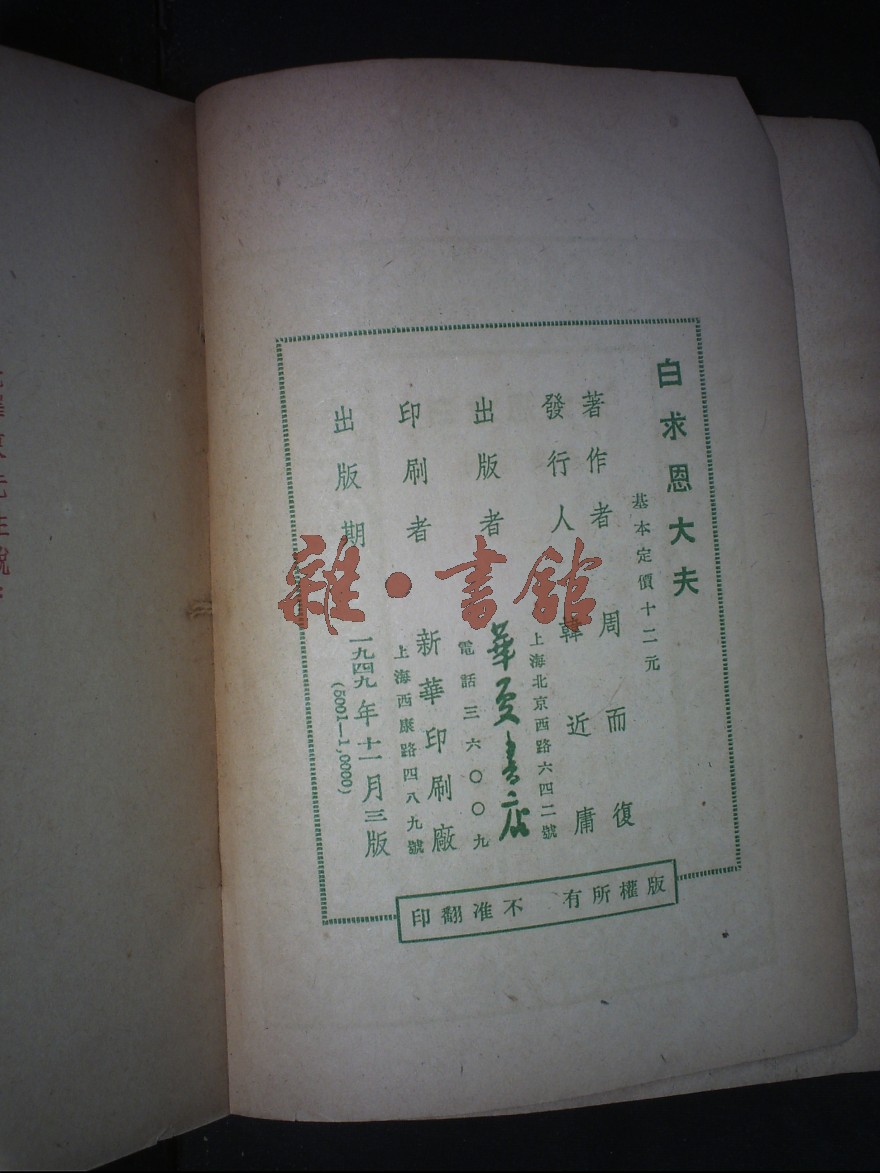 白求恩大夫
基本定價十二元
著作者 周而復
發行人 韓近庸
上海北京西路六四二號
出版者 華夏書店
電話三六〇〇九
印刷者 新華印刷廠
上海西康路四八九號
出版期 一九四九年十一月三版
(5001—1,0000)
版權所有 不准翻印
雜·書館